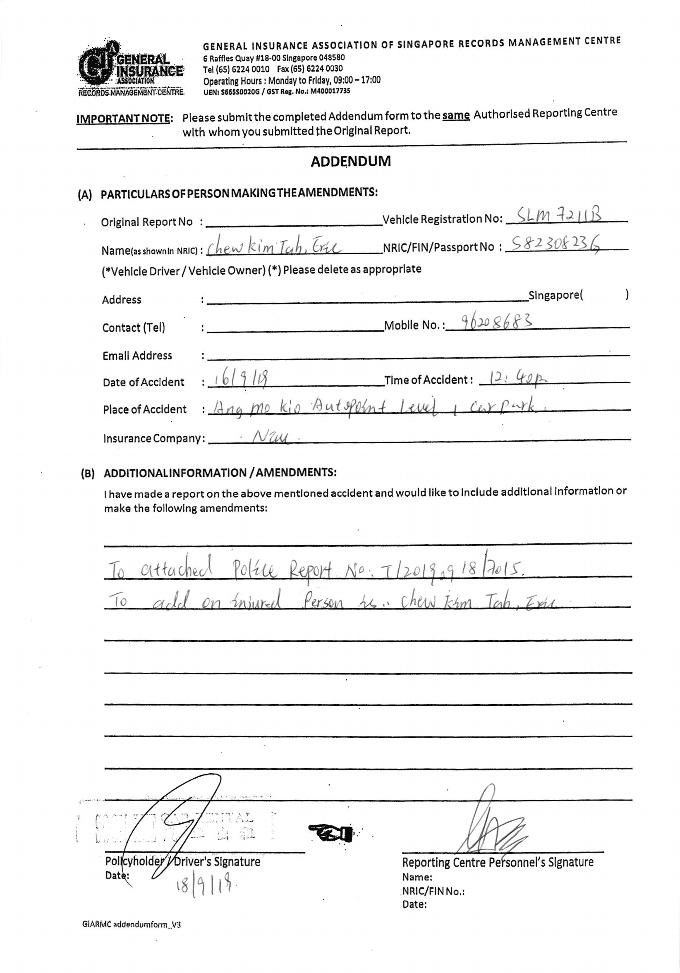 GENERAL INSURANCE ASSOCIATION
RECORDS MANAGEMENT CENTRE
GENERAL INSURANCE ASSOCIATION OF SINGAPORE RECORDS MANAGEMENT CENTRE
6 Raffles Quay #18-00 Singapore 048580
Tel (65) 6224 0010 Fax (65) 6224 0030
Operating Hours : Monday to Friday, 09:00 – 17:00
UEN: S66SS0020G / GST Reg. No.: M400017735
IMPORTANT NOTE: Please submit the completed Addendum form to the same Authorised Reporting Centre
with whom you submitted the Original Report.
ADDENDUM
(A) PARTICULARS OF PERSON MAKING THE AMENDMENTS:
Original Report No : Vehicle Registration No: SLM 7211B
Name(as shown in NRIC) : Chew Kim Tah, Eric NRIC/FIN/Passport No : S8230823G
(*Vehicle Driver / Vehicle Owner) (*) Please delete as appropriate
Address : Singapore( )
Contact (Tel) : Mobile No.: 96208683
Email Address :
Date of Accident : 16/9/19 Time of Accident : 12:40p
Place of Accident : Ang mo kio Autopoint Level 1 car park.
Insurance Company:
(B) ADDITIONAL INFORMATION / AMENDMENTS:
I have made a report on the above mentioned accident and would like to include additional information or
make the following amendments:
To attached Police Report No: T/20190918/7015.
To add on injured Person is: Chew Kim Tah, Eric
Policyholder / Driver's Signature
Date: 18/9/19.
Reporting Centre Personnel's Signature
Name:
NRIC/FIN No.:
Date:
GIARMC addendumform_V3